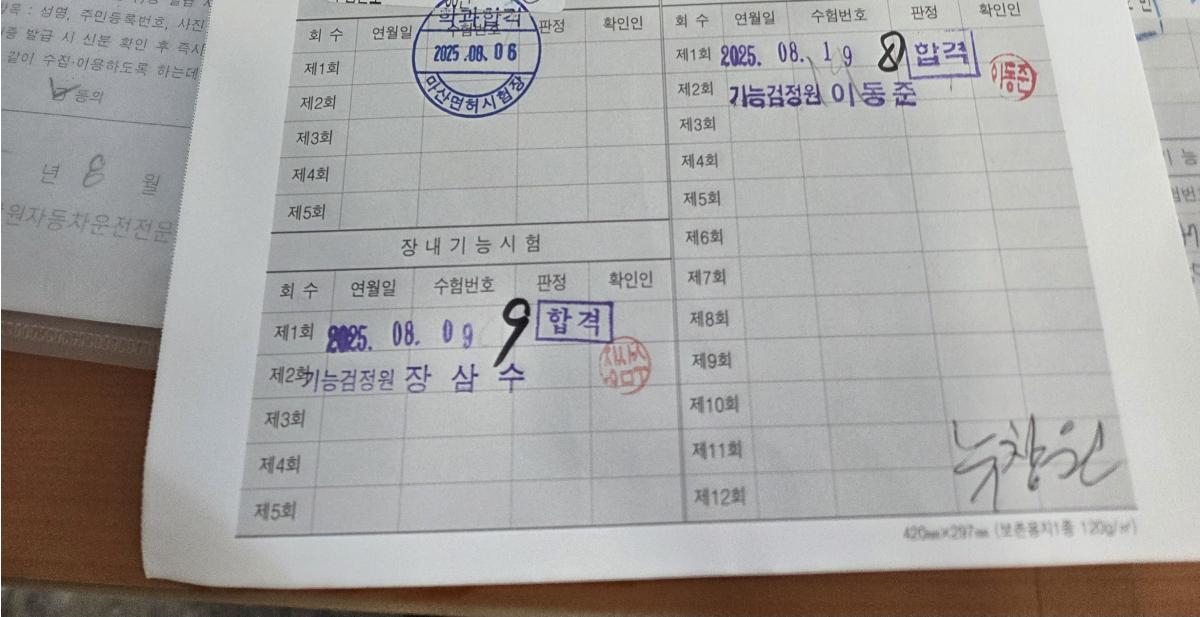 목 : 성명, 주민등록번호, 사진
증 발급 시 신분 확인 후 즉시
같이 수집·이용하도록 하는데
동의
년 8 월
원자동차운전전문
회 수 연월일 수험번호 판정 확인인
학과합격
2025.08.06
마산면허시험장
제1회
제2회
제3회
제4회
제5회
장내기능시험
회 수 연월일 수험번호 판정 확인인
제1회 2025. 08. 09 9 합격
제2회 기능검정원 장 삼 수
제3회
제4회
제5회
회 수 연월일 수험번호 판정 확인인
제1회 2025. 08. 19 8 합격
이동준
제2회 기능검정원 이 동 준
제3회
제4회
제5회
제6회
제7회
제8회
제9회
제10회
제11회
제12회
420㎜×297㎜ (보존용지1종 120g/㎡)